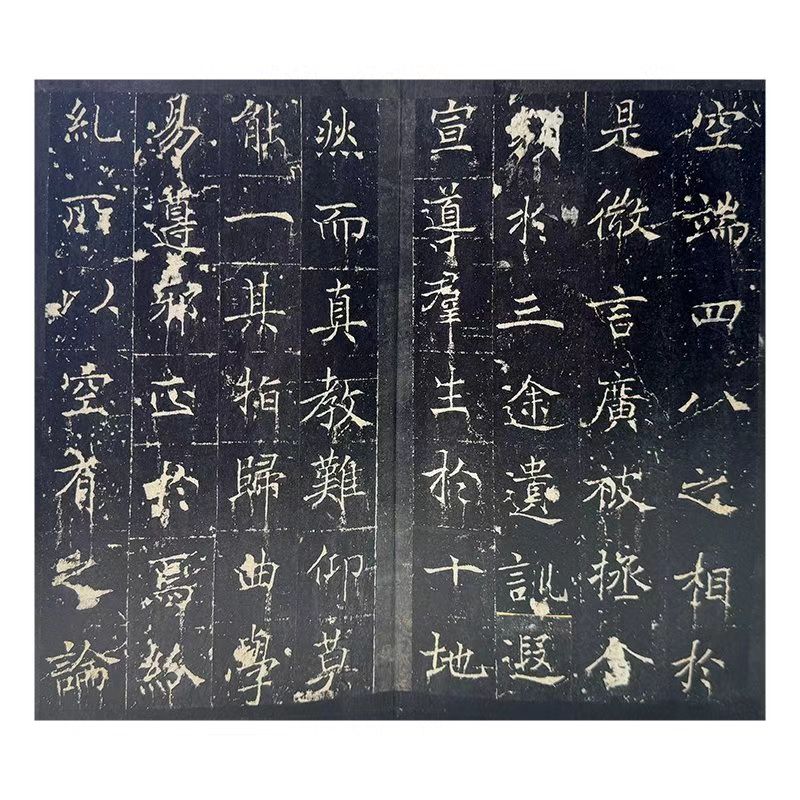 空端四八之相於
是微言廣被拯含
於三途遺訓遐
宣導羣生於十地
然而真教難仰莫
能一其指歸曲學
易遵邪正於焉紛
糺所以空有之論